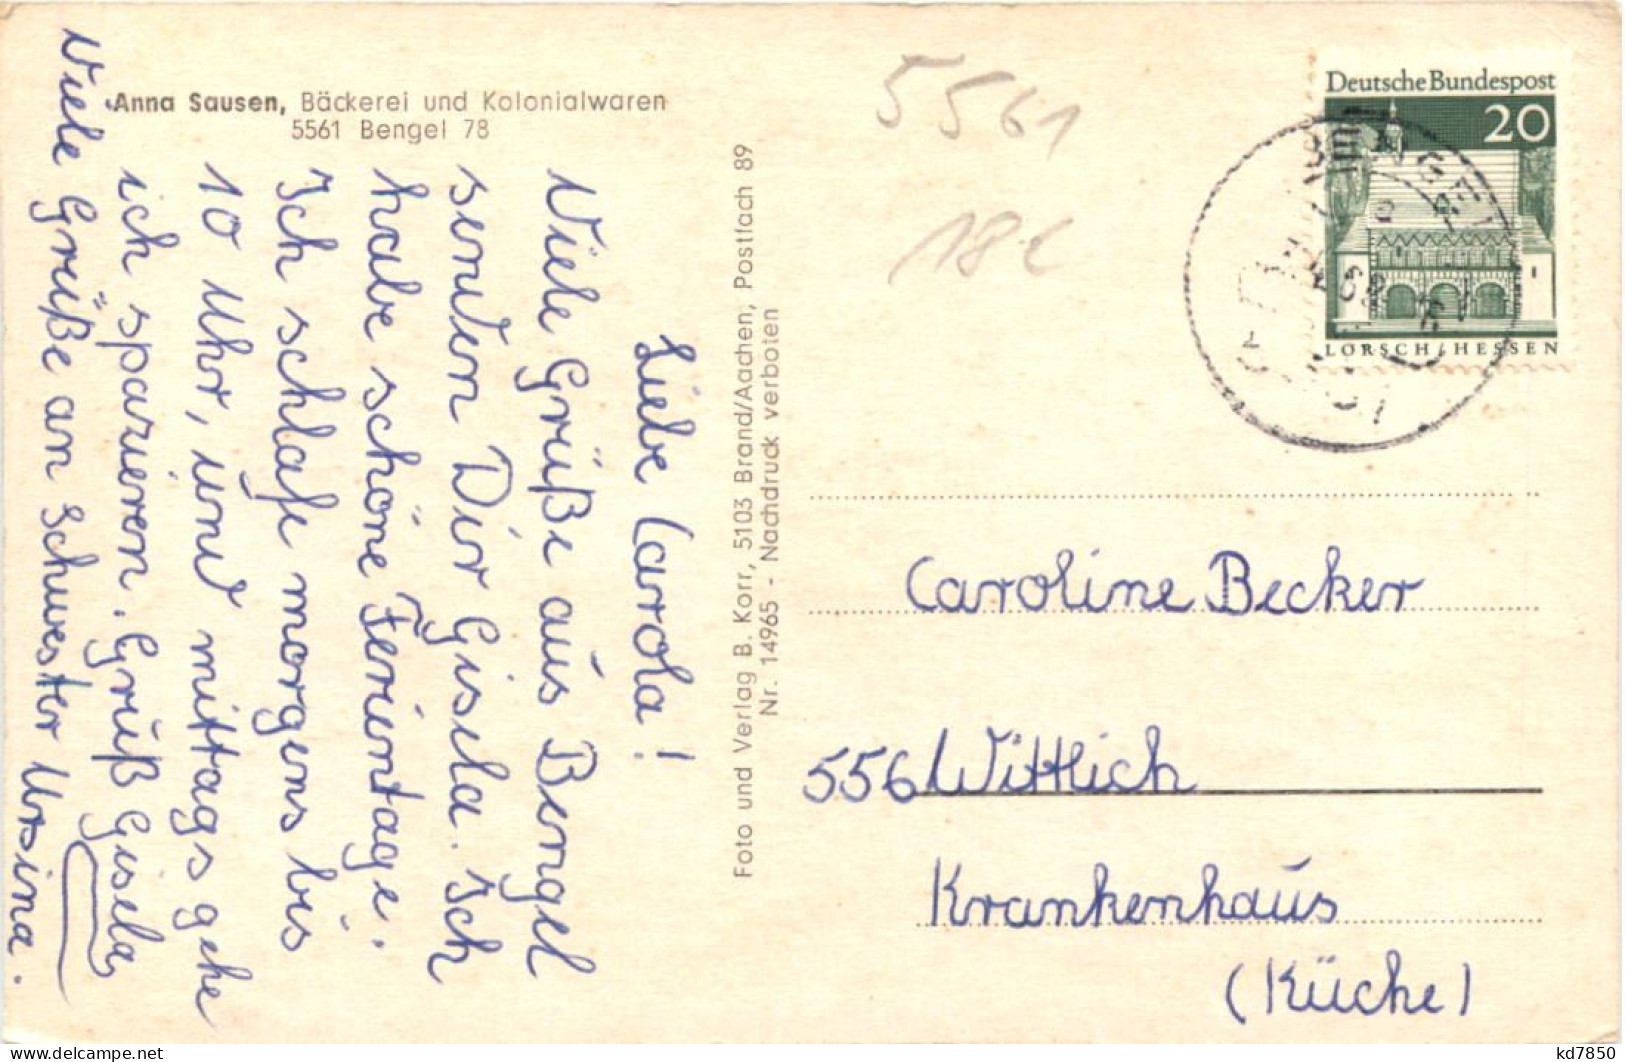 Anna Sausen, Bäckerei und Kolonialwaren
5561 Bengel 78
Liebe Carola!
Viele Grüße aus Bengel
senden Dir Gisela. Ich
habe schöne Ferientage.
Ich schlafe morgens bis
10 Uhr, und mittags gehe
ich spazieren. Gruß Gisela
Viele Grüße an Schwester Ursina.
Foto und Verlag B. Korr, 5103 Brand/Aachen, Postfach 89
Nr. 14965 - Nachdruck verboten
5561
18€
Deutsche Bundespost
20
LORSCH/HESSEN
BENGEL
Caroline Becker
556 Wittlich
Krankenhaus
(Küche)
kd7850